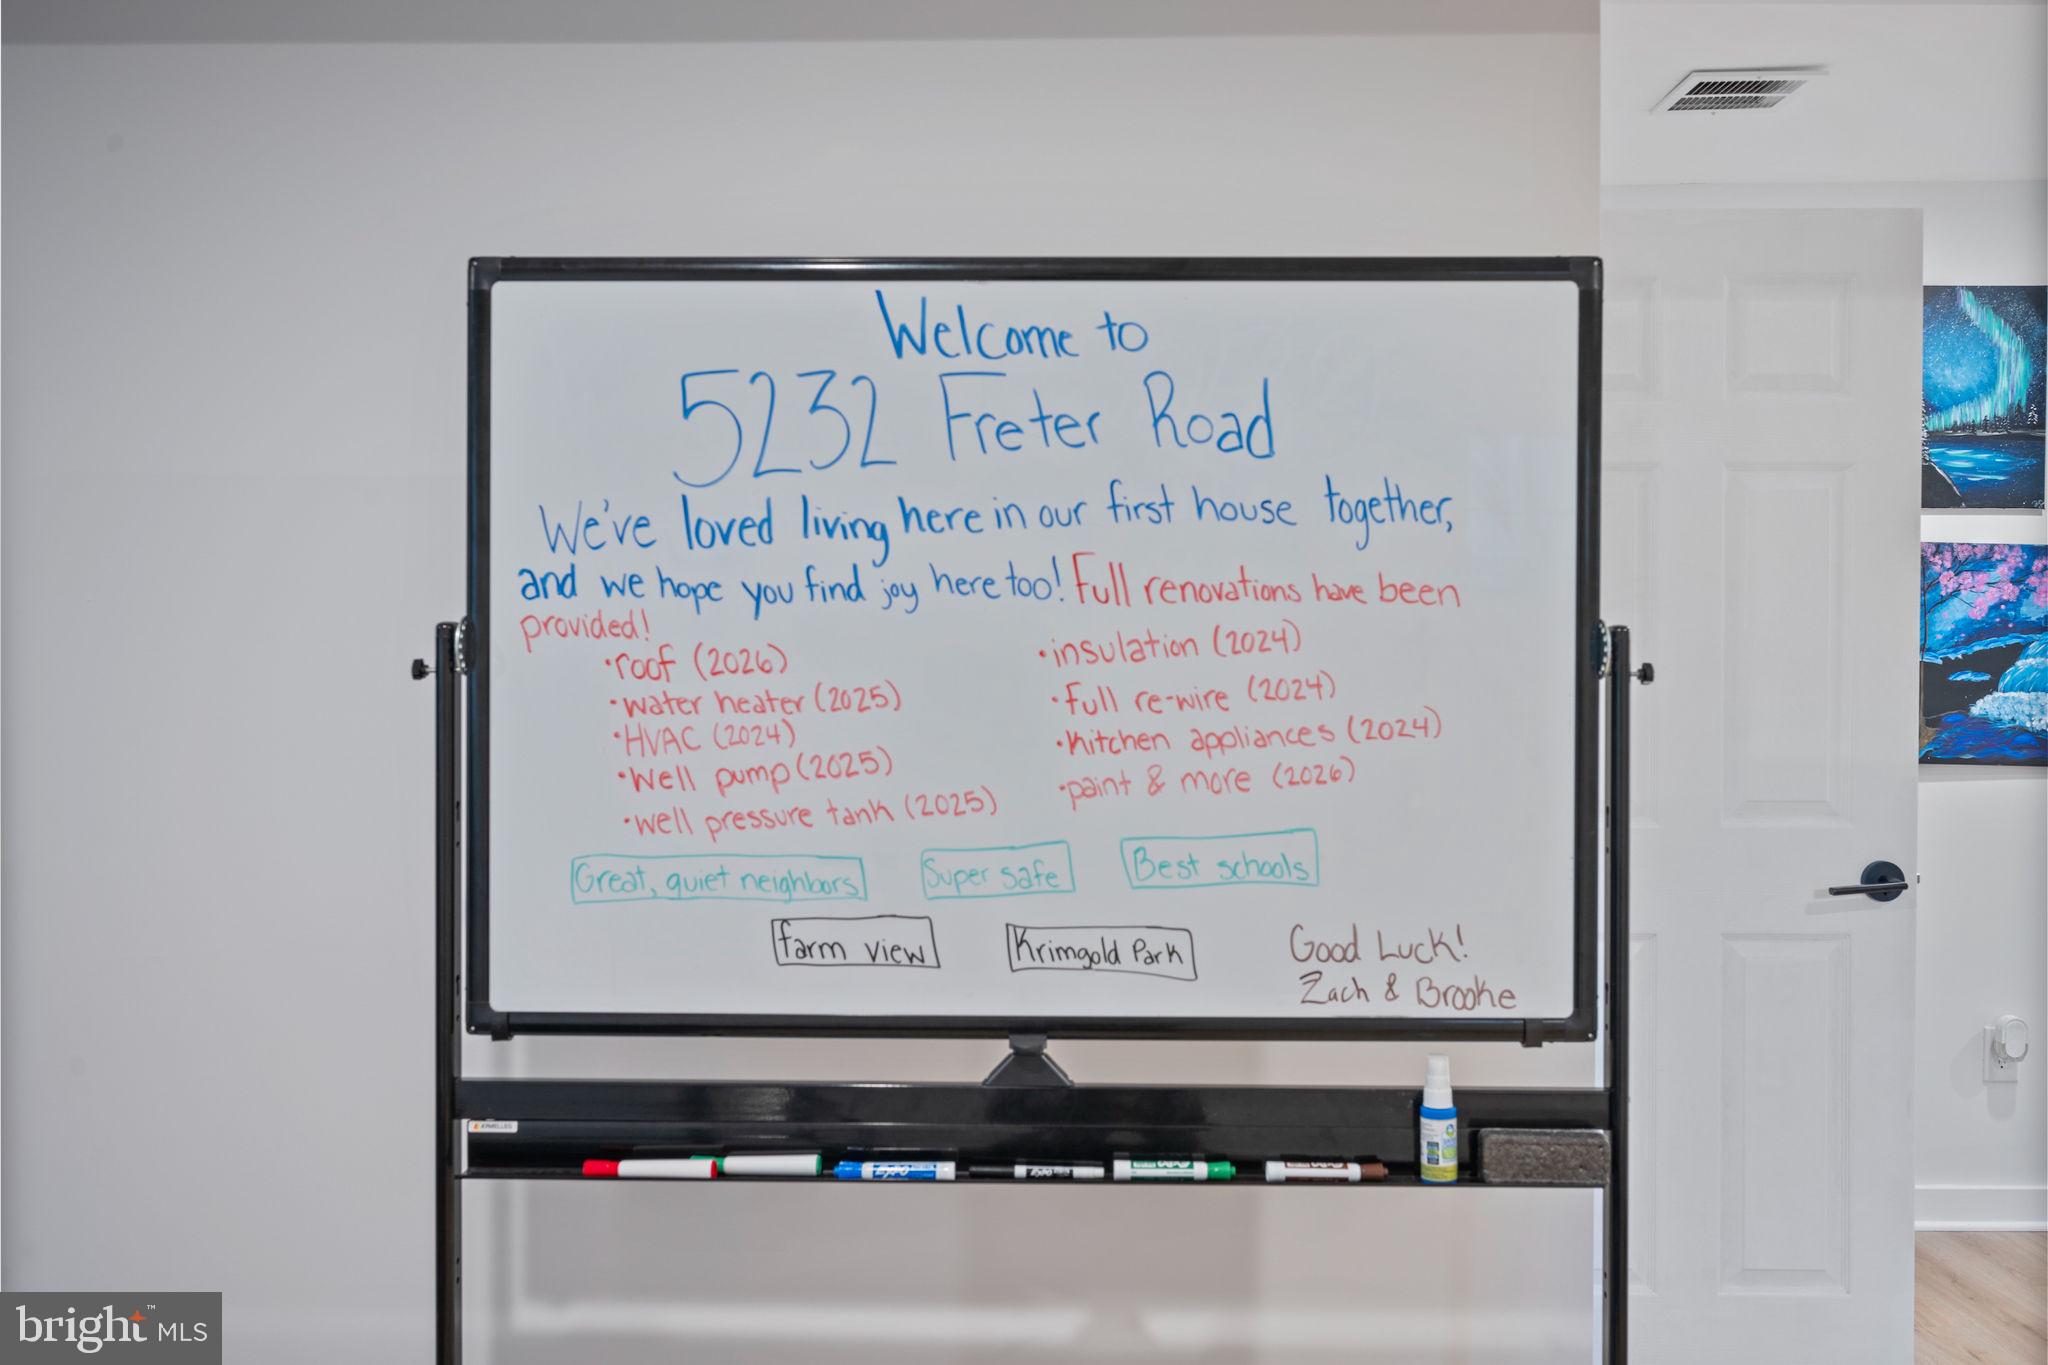 Welcome to
5232 Freter Road
We've loved living here in our first house together,
and we hope you find joy here too! Full renovations have been
provided!
•roof (2026)
•water heater (2025)
•HVAC (2024)
•Well pump (2025)
•well pressure tank (2025)
•insulation (2024)
•full re-wire (2024)
•Kitchen appliances (2024)
•paint & more (2026)
Great, quiet neighbors
Super safe
Best schools
farm view
Krimgold Park
Good Luck!
Zach & Brooke
EXPO
EXPO
EXPO
bright™ MLS